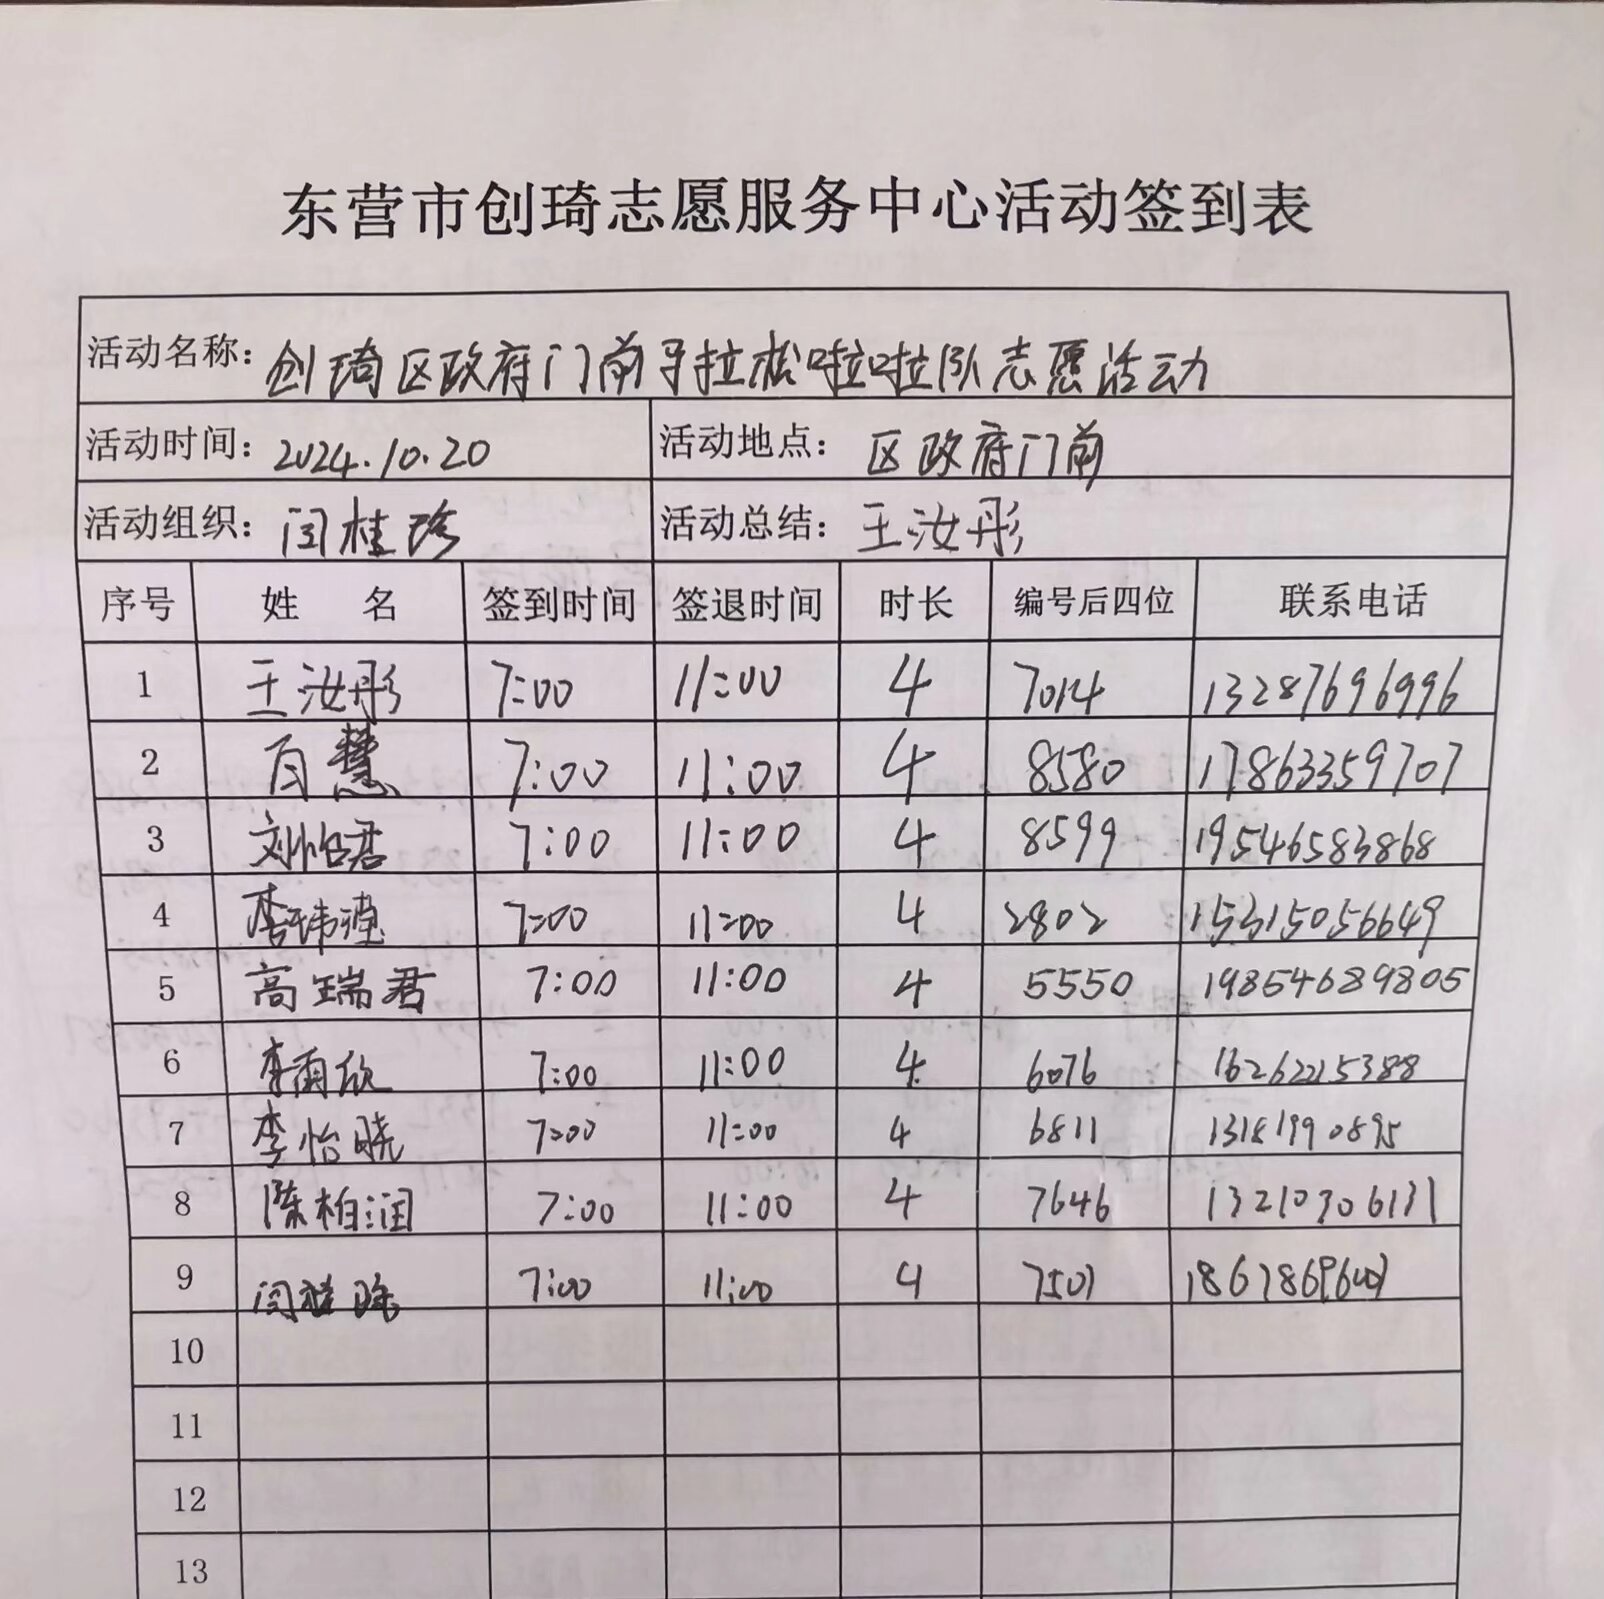 东营市创琦志愿服务中心活动签到表
活动名称: 创琦区政府门前马拉松啦啦队志愿活动
活动时间: 2024.10.20 活动地点: 区政府门前
活动组织: 闫桂珍 活动总结: 王汝彤
序号 姓 名 签到时间 签退时间 时长 编号后四位 联系电话
1 王汝彤 7:00 11:00 4 7014 13287696996
2 百慧 7:00 11:00 4 8580 17863359707
3 刘怡君 7:00 11:00 4 8599 19546583868
4 李玮瑾 7:00 11:00 4 2802 15315056649
5 高瑞君 7:00 11:00 4 5550 19854689805
6 李雨欣 7:00 11:00 4 6076 16262215388
7 李怡晓 7:00 11:00 4 6811 13181990895
8 陈柏润 7:00 11:00 4 7646 13210306131
9 闫桂珍 7:00 11:00 4 7507
10
11
12
13